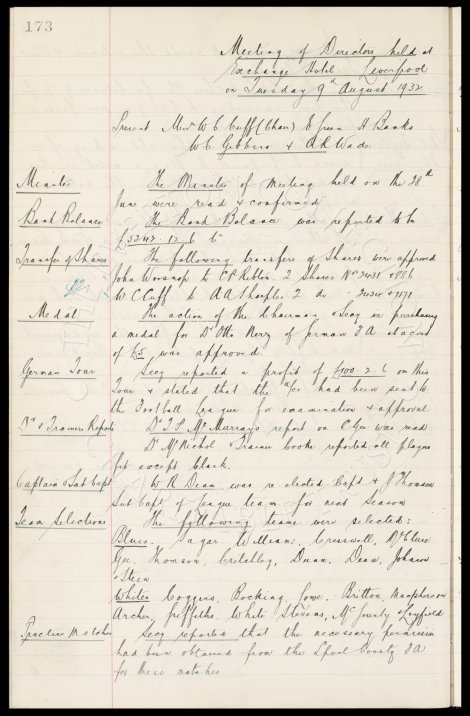 173
Meeting of Directors held at
Exchange Hotel Liverpool
on Tuesday 9th August 1932
Present Messrs W C Cuff (Chair) E Green H Banks
W C Gibbins & A R Wade
Minutes The Minutes of meeting held on the 28th
June were read & confirmed
Bank Balance The Bank Balance was reported to be
£5242. 12. 6
Transfer of Shares The following transfers of Shares were approved
John Worsnop to 2 Shares Nos 2431 & 886
W C Cuff to A A Sharples 2 do
Medal The action of the Chairman & Secy in purchasing
a medal for Dr Otto Nerz of German F A at a cost
of £5 was approved.
German Tour Secy reported a profit of £100. 2. 6 on this
Tour & stated that the a/cs had been sent to
the Football League for examination & approval.
Drs & Trainers Reports Dr McMurrays report on C Gee was read
Dr McNichol & Trainer Cooke reported all players
fit except Clark.
Captain & Sub Capt W R Dean was re-elected Capt & J Thomson
Sub Capt of League team for next season
Team Selections The following teams were selected:
Blues. Sagar Williams, Cresswell, McClure
Gee. Thomson, Critchley, Dunn, Dean, Johnson
& Stein
Whites Coggins, Bocking, Lowe, Britton, Macpherson
Archer, Griffiths, White, Stevens, McGourty & Leyfield
Practice Matches Secy reported that the necessary permission
had been obtained from the Lpool County F A
for these matches